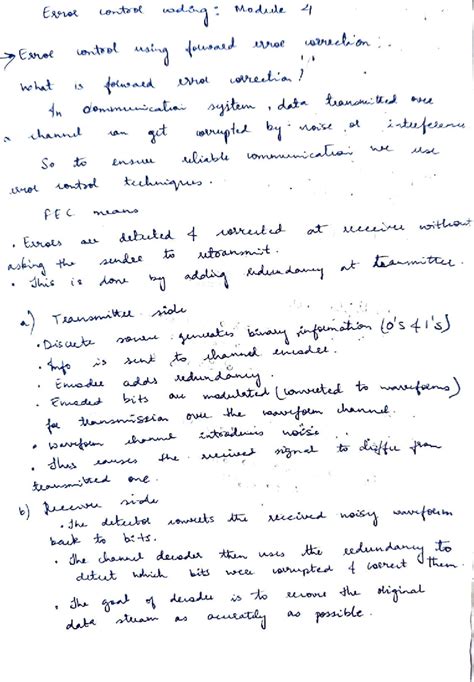 Error control coding: Module 4
→ Error control using forward error correction:
What is forward error correction?
In communication system, data transmitted over
a channel can get corrupted by noise or interference
So to ensure reliable communication we use
error control techniques.
FEC means
• Errors are detected & corrected at receiver without
asking the sender to retransmit.
• This is done by adding redundancy at transmitter.
a) Transmitter side
• Discrete source generates binary information (0's & 1's)
• Info is sent to channel encoder.
• Encoder adds redundancy.
• Encoded bits are modulated (converted to waveforms)
for transmission over the waveform channel.
• Waveform channel introduces noise
• This causes the received signal to differ from
transmitted one.
b) Receiver side
• The detector converts the received noisy waveform
back to bits.
• The channel decoder then uses the redundancy to
detect which bits were corrupted & correct them.
• The goal of decoder is to recover the original
data stream as accurately as possible.